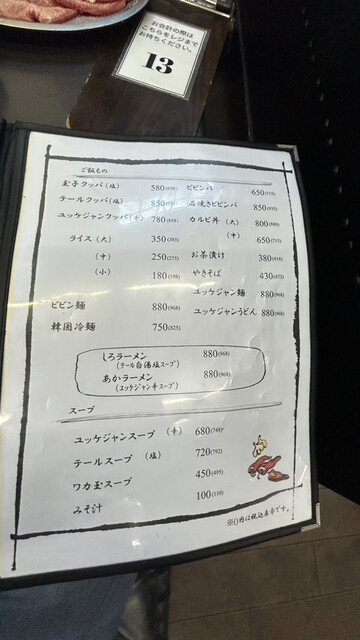 お会計の際は
こちらをレジまで
お持ちください。
13
ご飯もの
玉子クッパ(塩) 580(638)
テールクッパ(塩) 850(935)
ユッケジャンクッパ(辛) 780(858)
ライス(大) 350(385)
(中) 250(275)
(小) 180(198)
ビビン麺 880(968)
韓国冷麺 750(825)
ビビンバ 650(715)
石焼きビビンバ 850(935)
カルビ丼(大) 800(880)
(中) 650(715)
お茶漬け 380(418)
やきそば 430(473)
ユッケジャン麺 880(968)
ユッケジャンうどん 880(968)
しろラーメン 880(968)
(テール白湯塩スープ)
あかラーメン 880(968)
(ユッケジャン辛スープ)
スープ
ユッケジャンスープ(辛) 680(748)
テールスープ(塩) 720(792)
ワカ玉スープ 450(495)
みそ汁 100(110)
※()内は税込表示です。